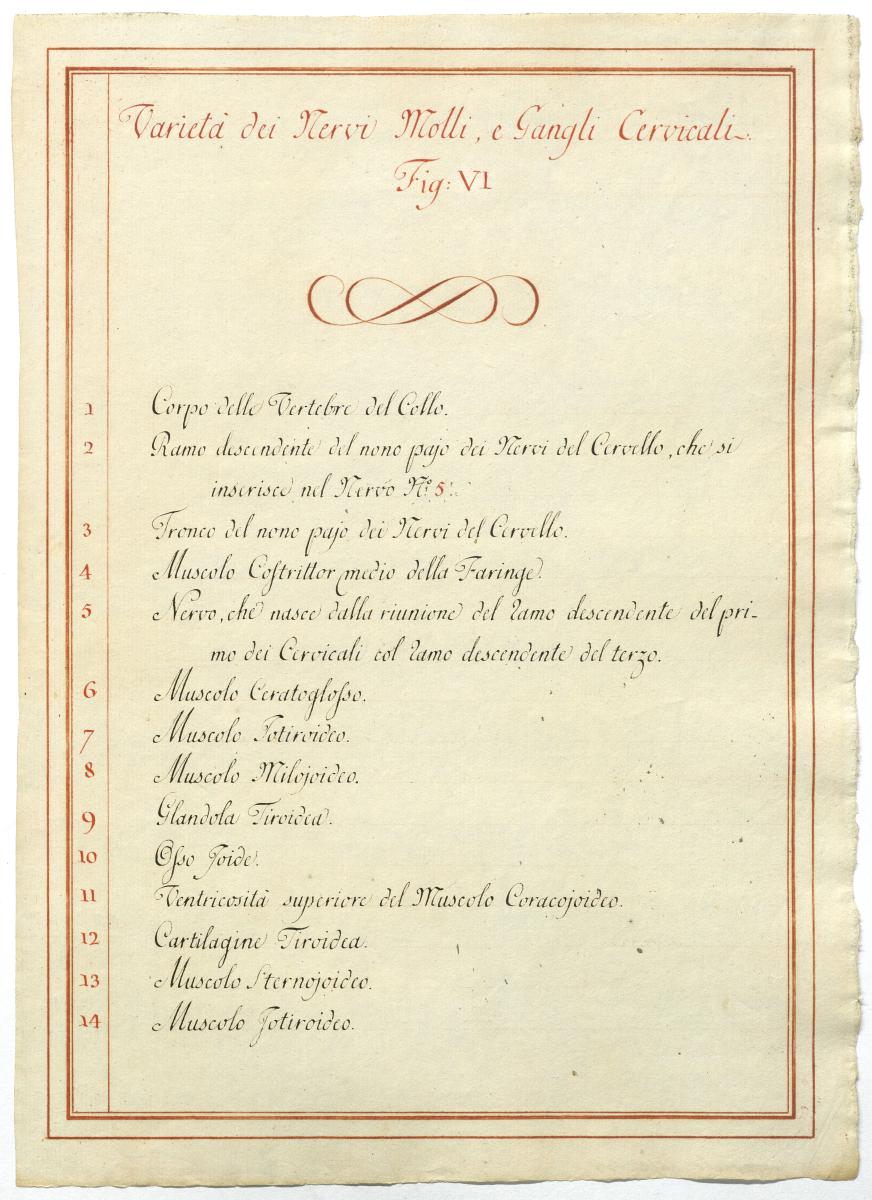 Varietà dei Nervi Molli, e Gangli Cervicali.
Fig: VI
1 Corpo delle Vertebre del Collo.
2 Ramo descendente del nono pajo dei Nervi del Cervello, che si
inserisce nel Nervo N.º 5.
3 Tronco del nono pajo dei Nervi del Cervello.
4 Muscolo Coſtrittor medio della Faringe.
5 Nervo, che nasce dalla riunione del ramo descendente del pri-
mo dei Cervicali col ramo descendente del terzo.
6 Muscolo Ceratogloſso.
7 Muscolo Jotiroideo.
8 Muscolo Milojoideo.
9 Glandola Tiroidea.
10 Oſso Joide.
11 Ventricosità superiore del Muscolo Coracojoideo.
12 Cartilagine Tiroidea.
13 Muscolo Sternojoideo.
14 Muscolo Jotiroideo.